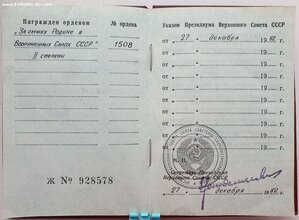 www.FORUMs-SU.com
Награжден орденом
№ ордена
„За службу Родине в
Вооруженных Силах СССР"
1508
II степени
Ж № 928578
Указом Президиума Верховного Совета СССР
от „ 27 " декабря 1982
от „ " 19 г.
от „ " 19 г.
от „ " 19 г.
от „ " 19 г.
от „ " 19 г.
от „ " 19 г.
от „ " 19 г.
М. П.
Секретарь Президиума
Верховного Совета СССР
„ 27 " декабря 1982 г.